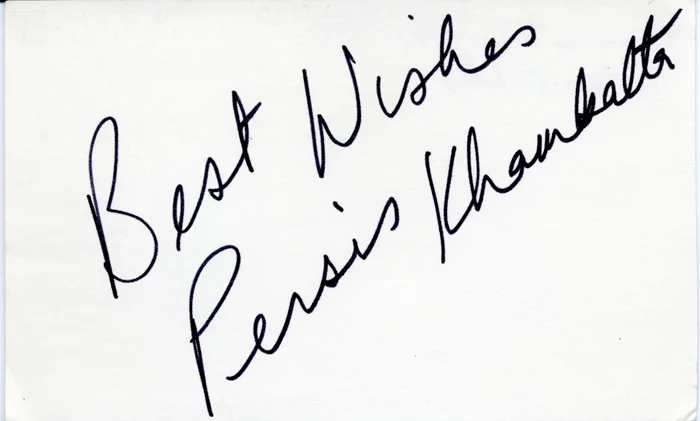 Best Wishes
Persis Khambatta